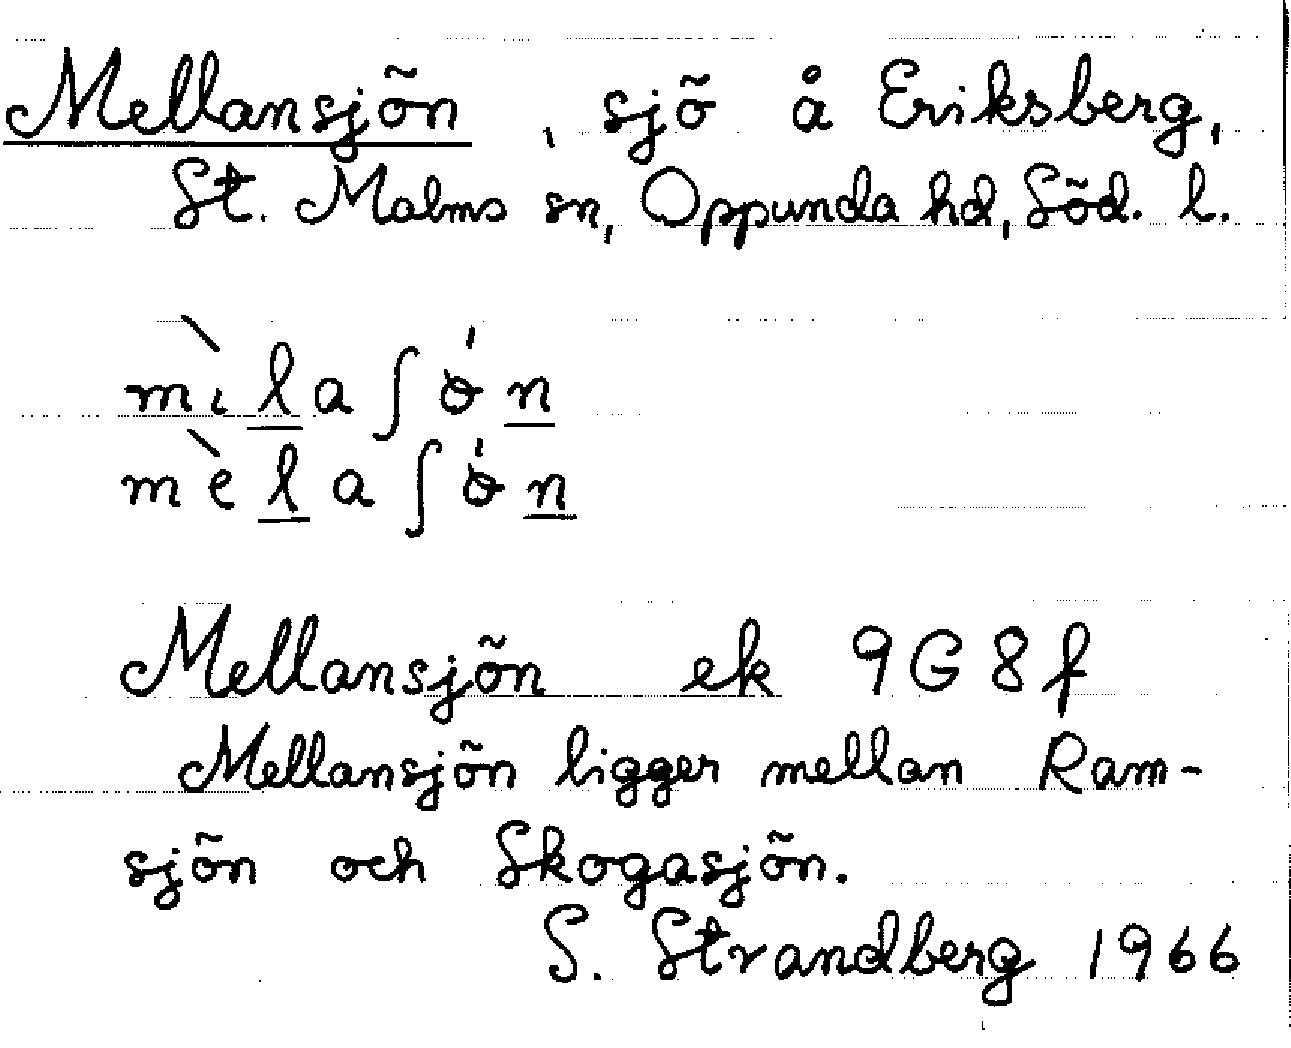 Mellansjön, sjö å Eriksberg,
St. Malms sn, Oppunda hd, Söd. l.
mìlaʃön
mèlaʃön
Mellansjön ek 9G8f
Mellansjön ligger mellan Ram-
sjön och Skogasjön.
S. Strandberg 1966